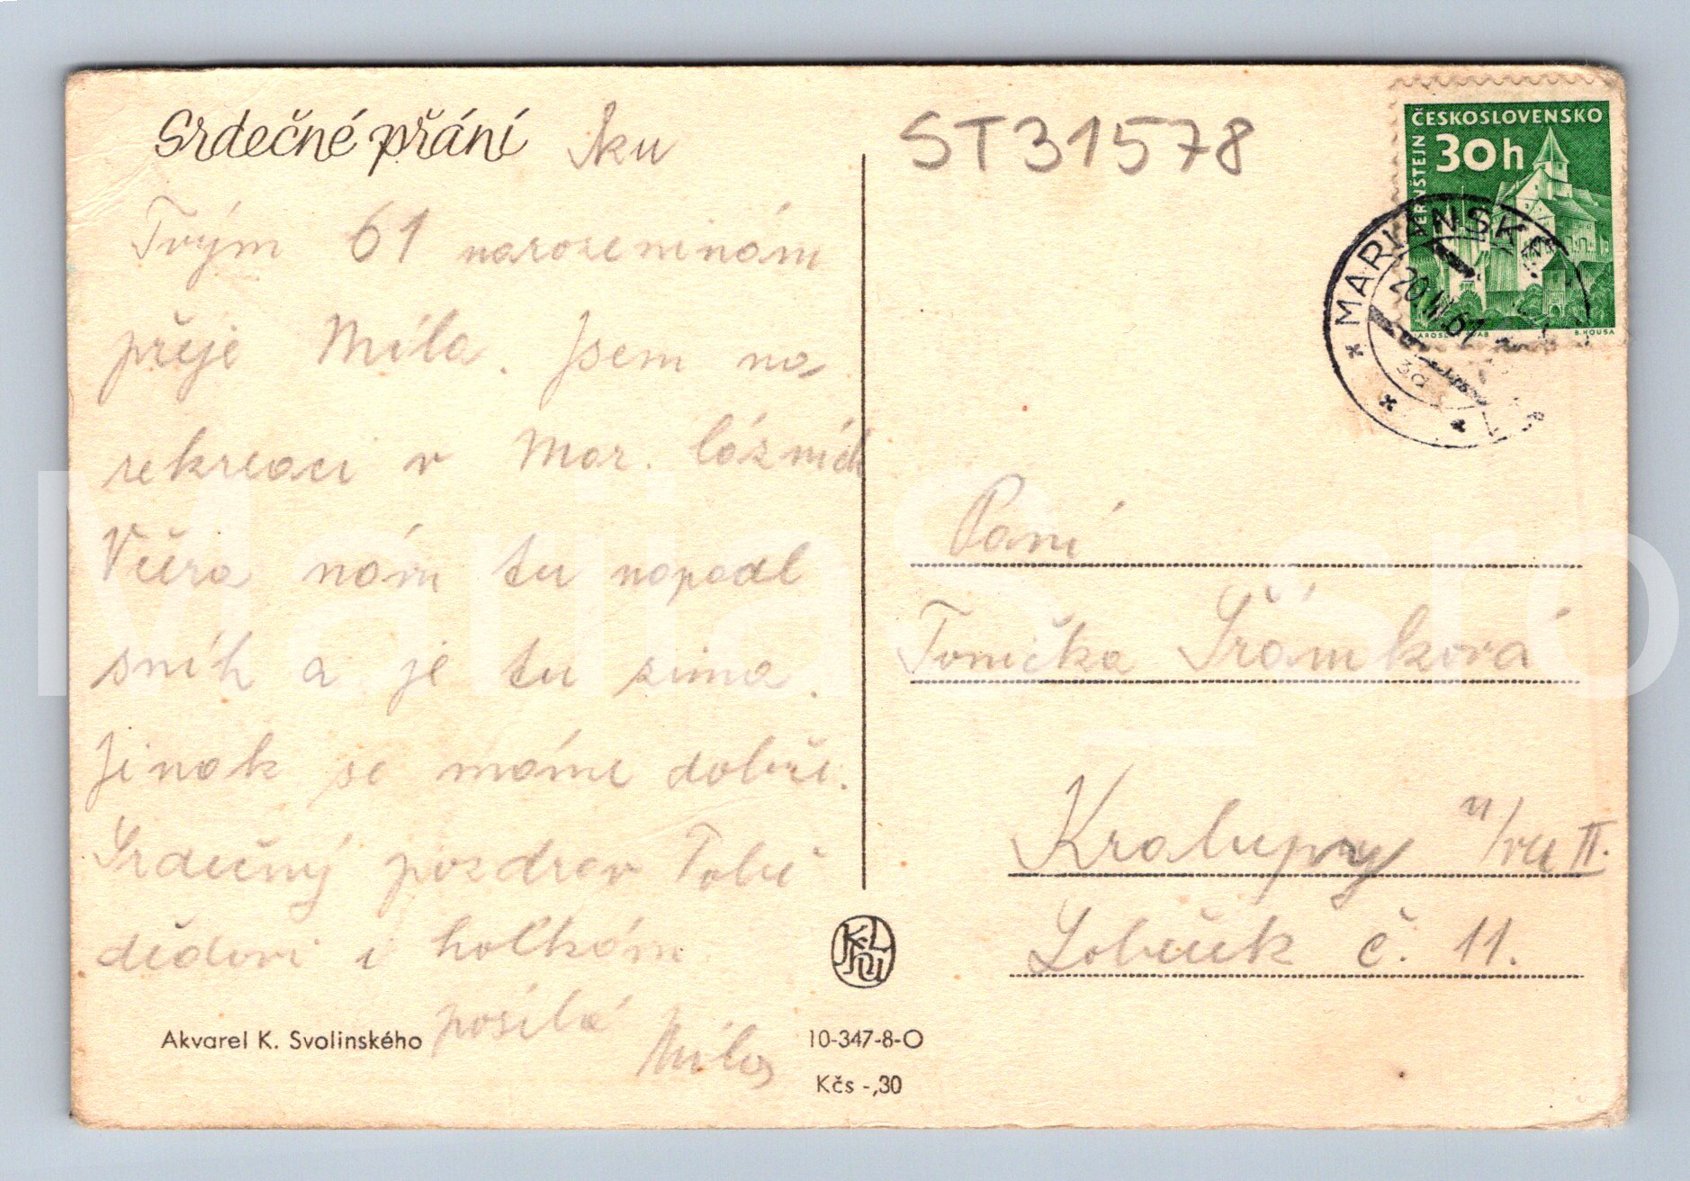 Srdečné přání ku
Tvým 61 narozeninám
přeje Míla. Jsem na
rekreaci v Mar. lázních
Včera nám tu napadl
sníh a je tu zima.
Jinak se máme dobře.
Srdečný pozdrav Tobě
dědovi i holkám
posílá
Míla
Akvarel K. Svolinského
10-347-8-O
Kčs -,30
ST31578
ČESKOSLOVENSKO
30h
B. HOUSA
MARIÁNSKÉ
61
3a
Paní
Tonička Šrámková
Kralupy n/Vl II.
Lobeček č. 11.